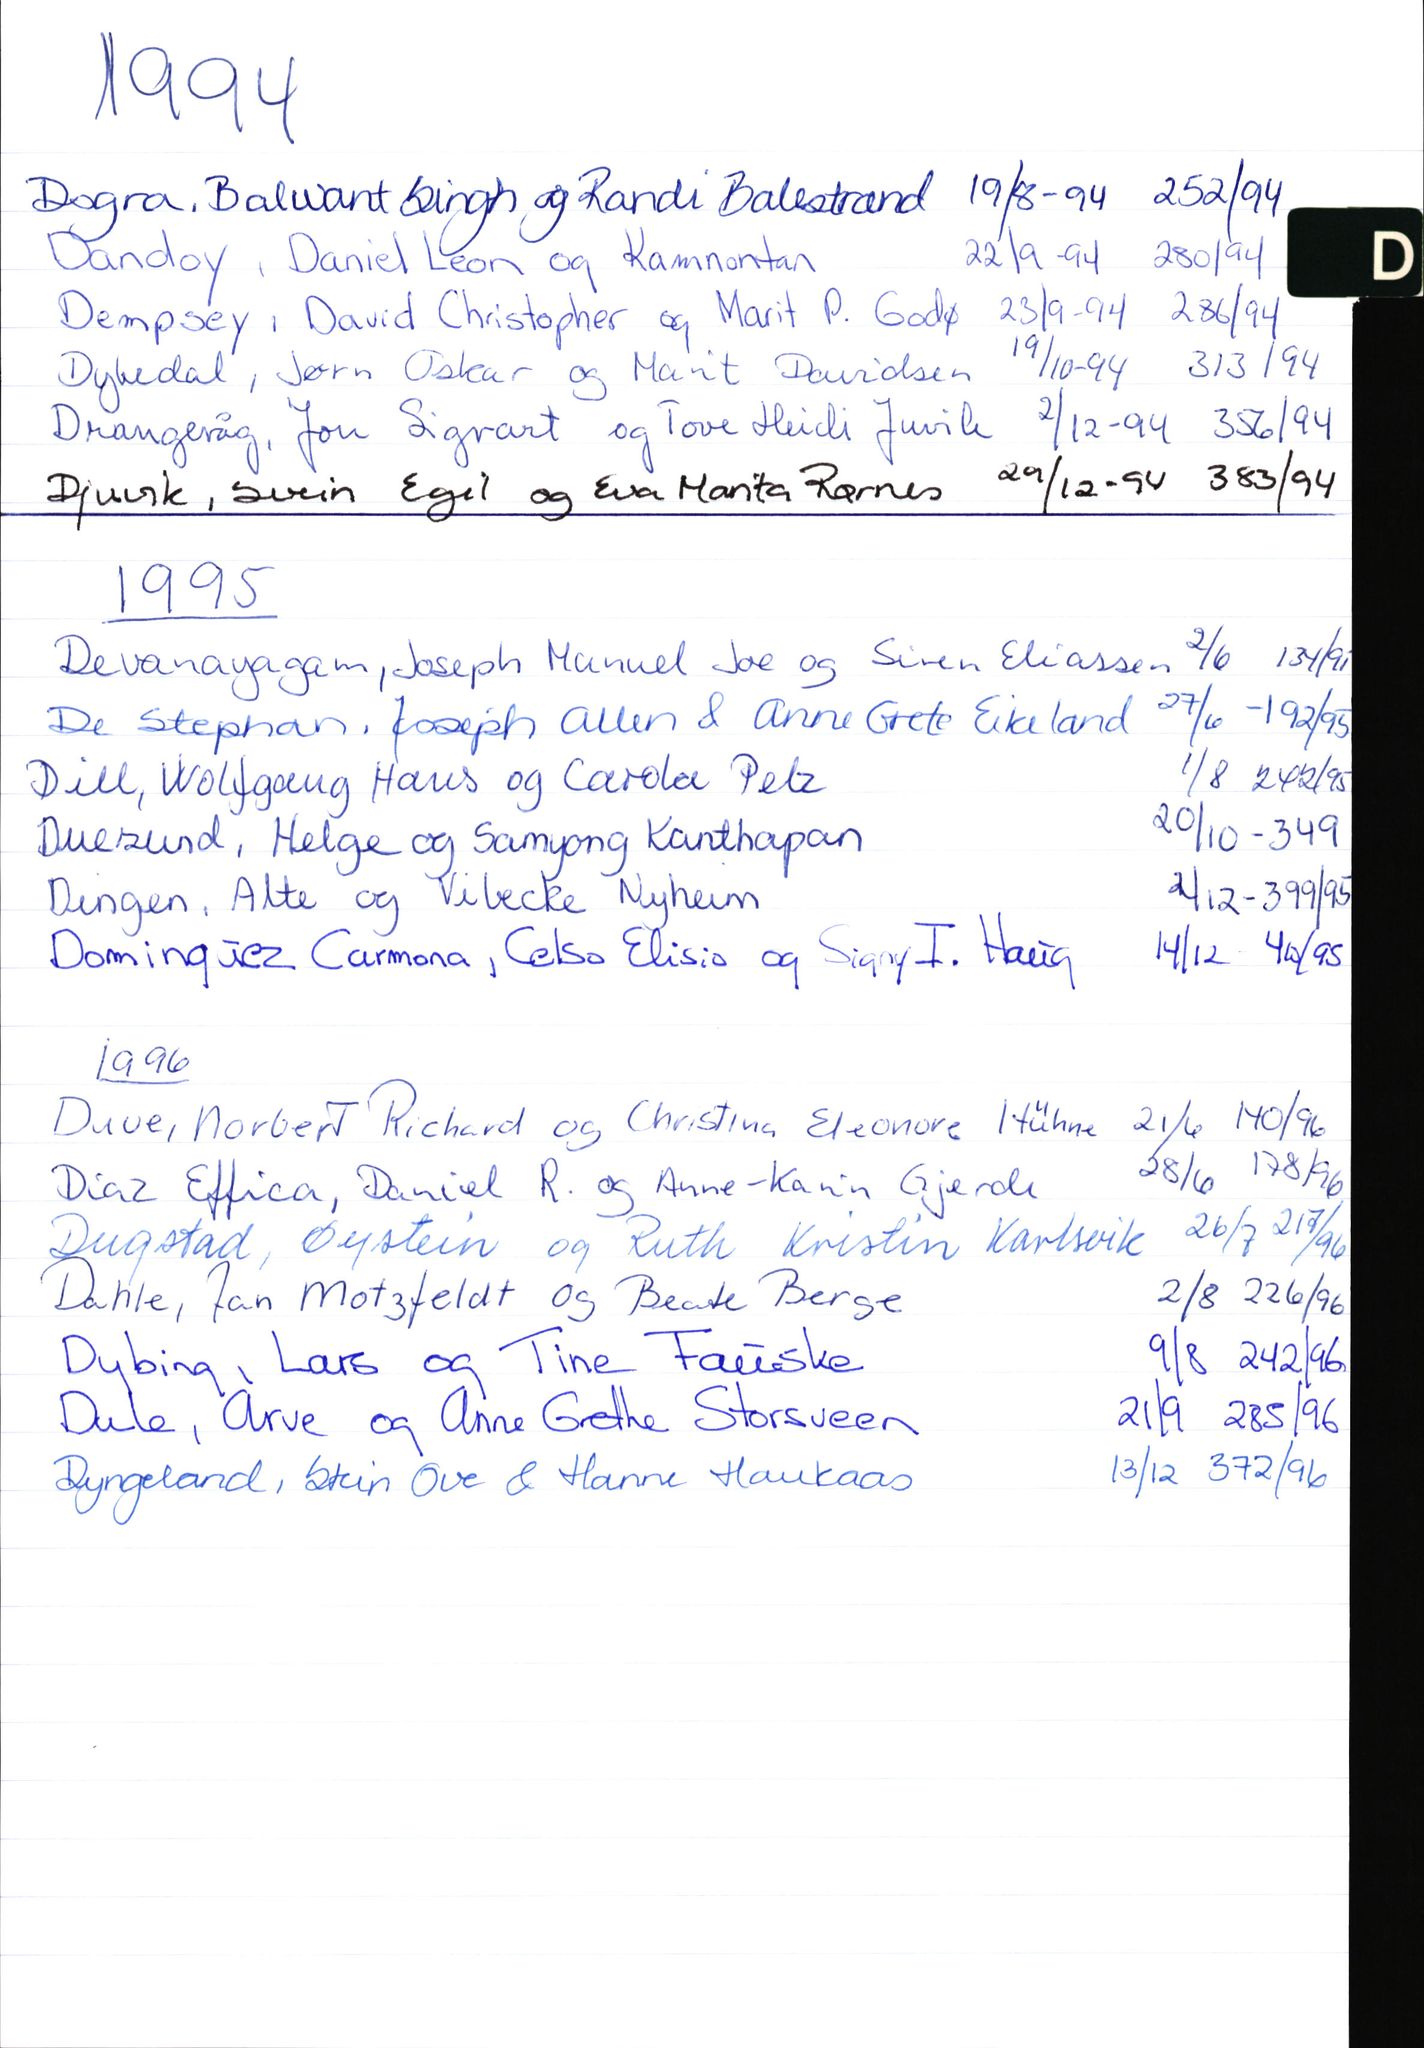 1994
Dogra, Balwant Singh og Randi Balestrand 19/8-94 252/94
Dandoy, Daniel Leon og Kamnontan 22/9-94 280/94
D
Dempsey, David Christopher og Marit P. Godø 23/9-94 286/94
Dybedal, Jørn Oskar og Marit Davidsen 19/10-94 313/94
Drangevåg, Jon Sigvart og Tove Heidi Juvik 2/12-94 356/94
Djuvik, Svein Egil og Eva Marita Rærnes 29/12-94 383/94
1995
Devanayagam, Joseph Manuel Joe og Siren Eliassen 2/6
De Stephan, Joseph Allen & Anne Grete Eikeland 27/6 -192/95
Dill, Wolfgang Hans og Carola Pelz 1/8 242/95
Duesund, Helge og Samyong Kanthapan 20/10-349
Dingen, Atte og Vibecke Nyheim 2/12-399/95
Dominguez Carmona, Celso Elisio og Signy I. Haug 14/12
1996
Duve, Norbert Richard og Christina Eleonore Hühne 21/6 140/96
Diaz Effica, Daniel R. og Anne-Karin Gjerde 28/6 178/96
Dugstad, Øystein og Ruth Kristin Karlsvik 26/7 217/96
Dahle, Jan Motzfeldt og Beate Berge 2/8 226/96
Dybing, Lars og Tine Fauske 9/8 242/96
Dale, Arve og Anne Grethe Storsveen 21/9 285/96
Dyngeland, Stein Ove & Hanne Haukaas 13/12 372/96